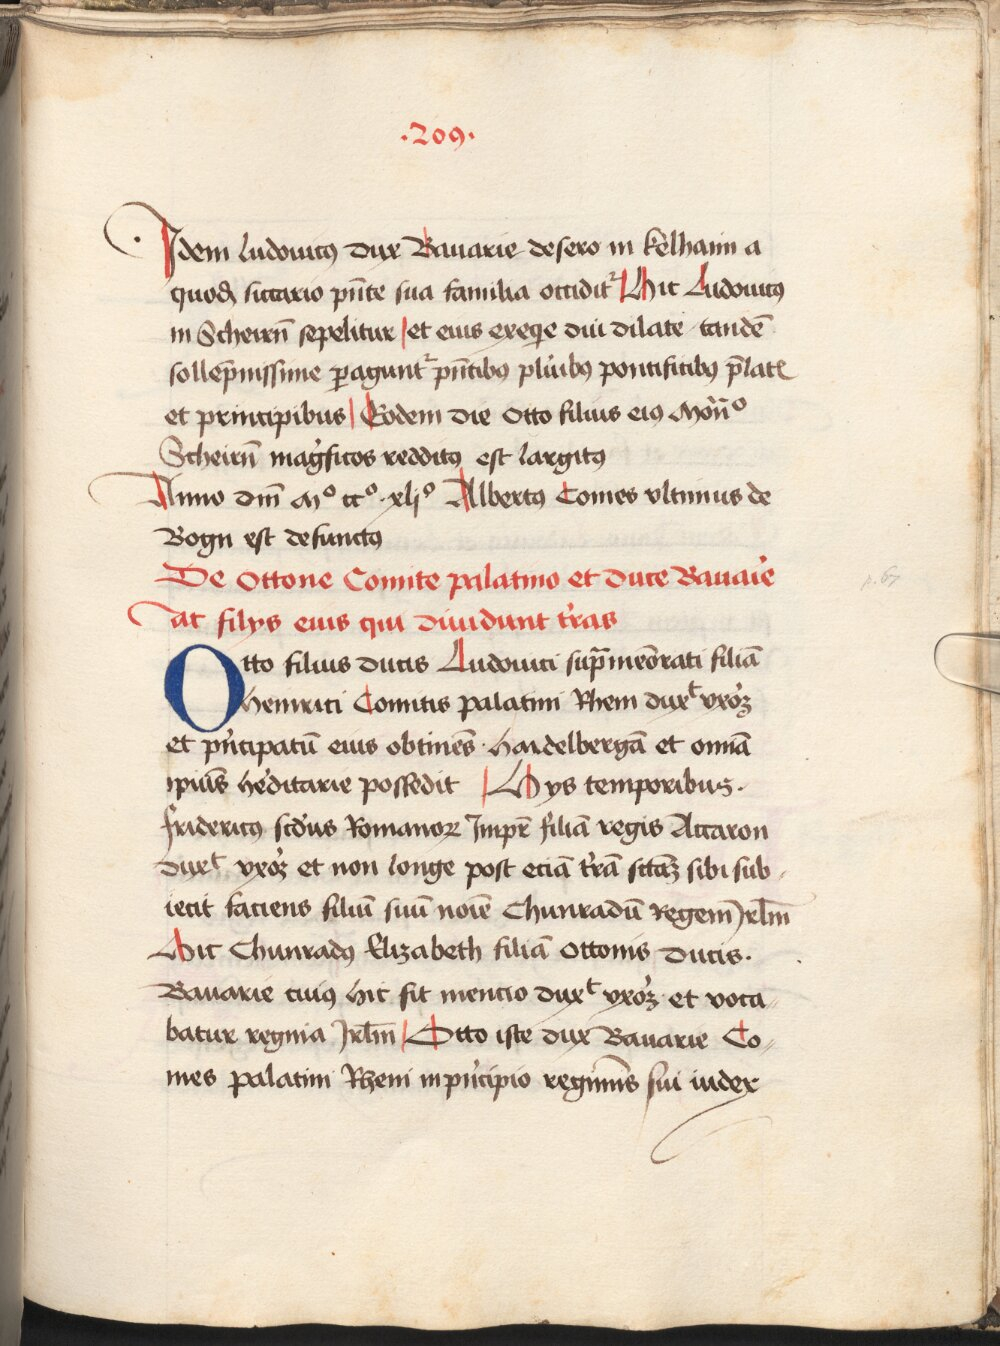 ·209·
Idem ludouicꝰ dux Bauarie desero in kelhaim a
quodā siccario pn̄te sua familia occidit᷑ Hic Ludouicꝰ
in Scheirn̄ sepelitur et eius exeqͥe diu dilate tandē
sollēpnissime ꝑagunt᷑ pn̄tibꝰ plurībꝰ pontificibꝰ p̄latꝭ
et principibus Eodem die Otto filius eiꝰ Mon̄rͦ
Scheirn̄ magͥficos redditꝰ est largitꝰ
Anno dm̄ Mͦ ccͦ xljͦ Albertꝰ Comes vltimus de
Bogn est defunctꝰ
De Ottone Comite palatino et duce Bauaīe
ac filijs eius qui diuidunt tr̄as
Otto filius ducis Ludouici sup̄meōrati filiā
henrici Comitis palatini Rheni duxᵗ vxōꝝ
et pͥncipatū eius obtinēs haidelbergā et omīa
ipīus heͬditarie possedit Hijs temporibus·
fridericꝰ scd̄us Romanoꝝ Impr̄ filiā regis Accaron
duxᵗ vxōꝝ et non longe post eciā tr̄ā sc̄tāꝫ sibi sub-
iecit faciens filiū suū noīe Chunradū Regem Jrl̄m
Hic Chunradꝰ Elizabeth filiā Ottonis Ducis·
Bauarie cuiꝰ hic fit mencio duxᵗ vxōꝝ et voca-
batur regina Jrl̄m Otto iste dux Bauarie Co-
mes palatini Rheni in pͥncipio regim̄is sui iudex
p. 67